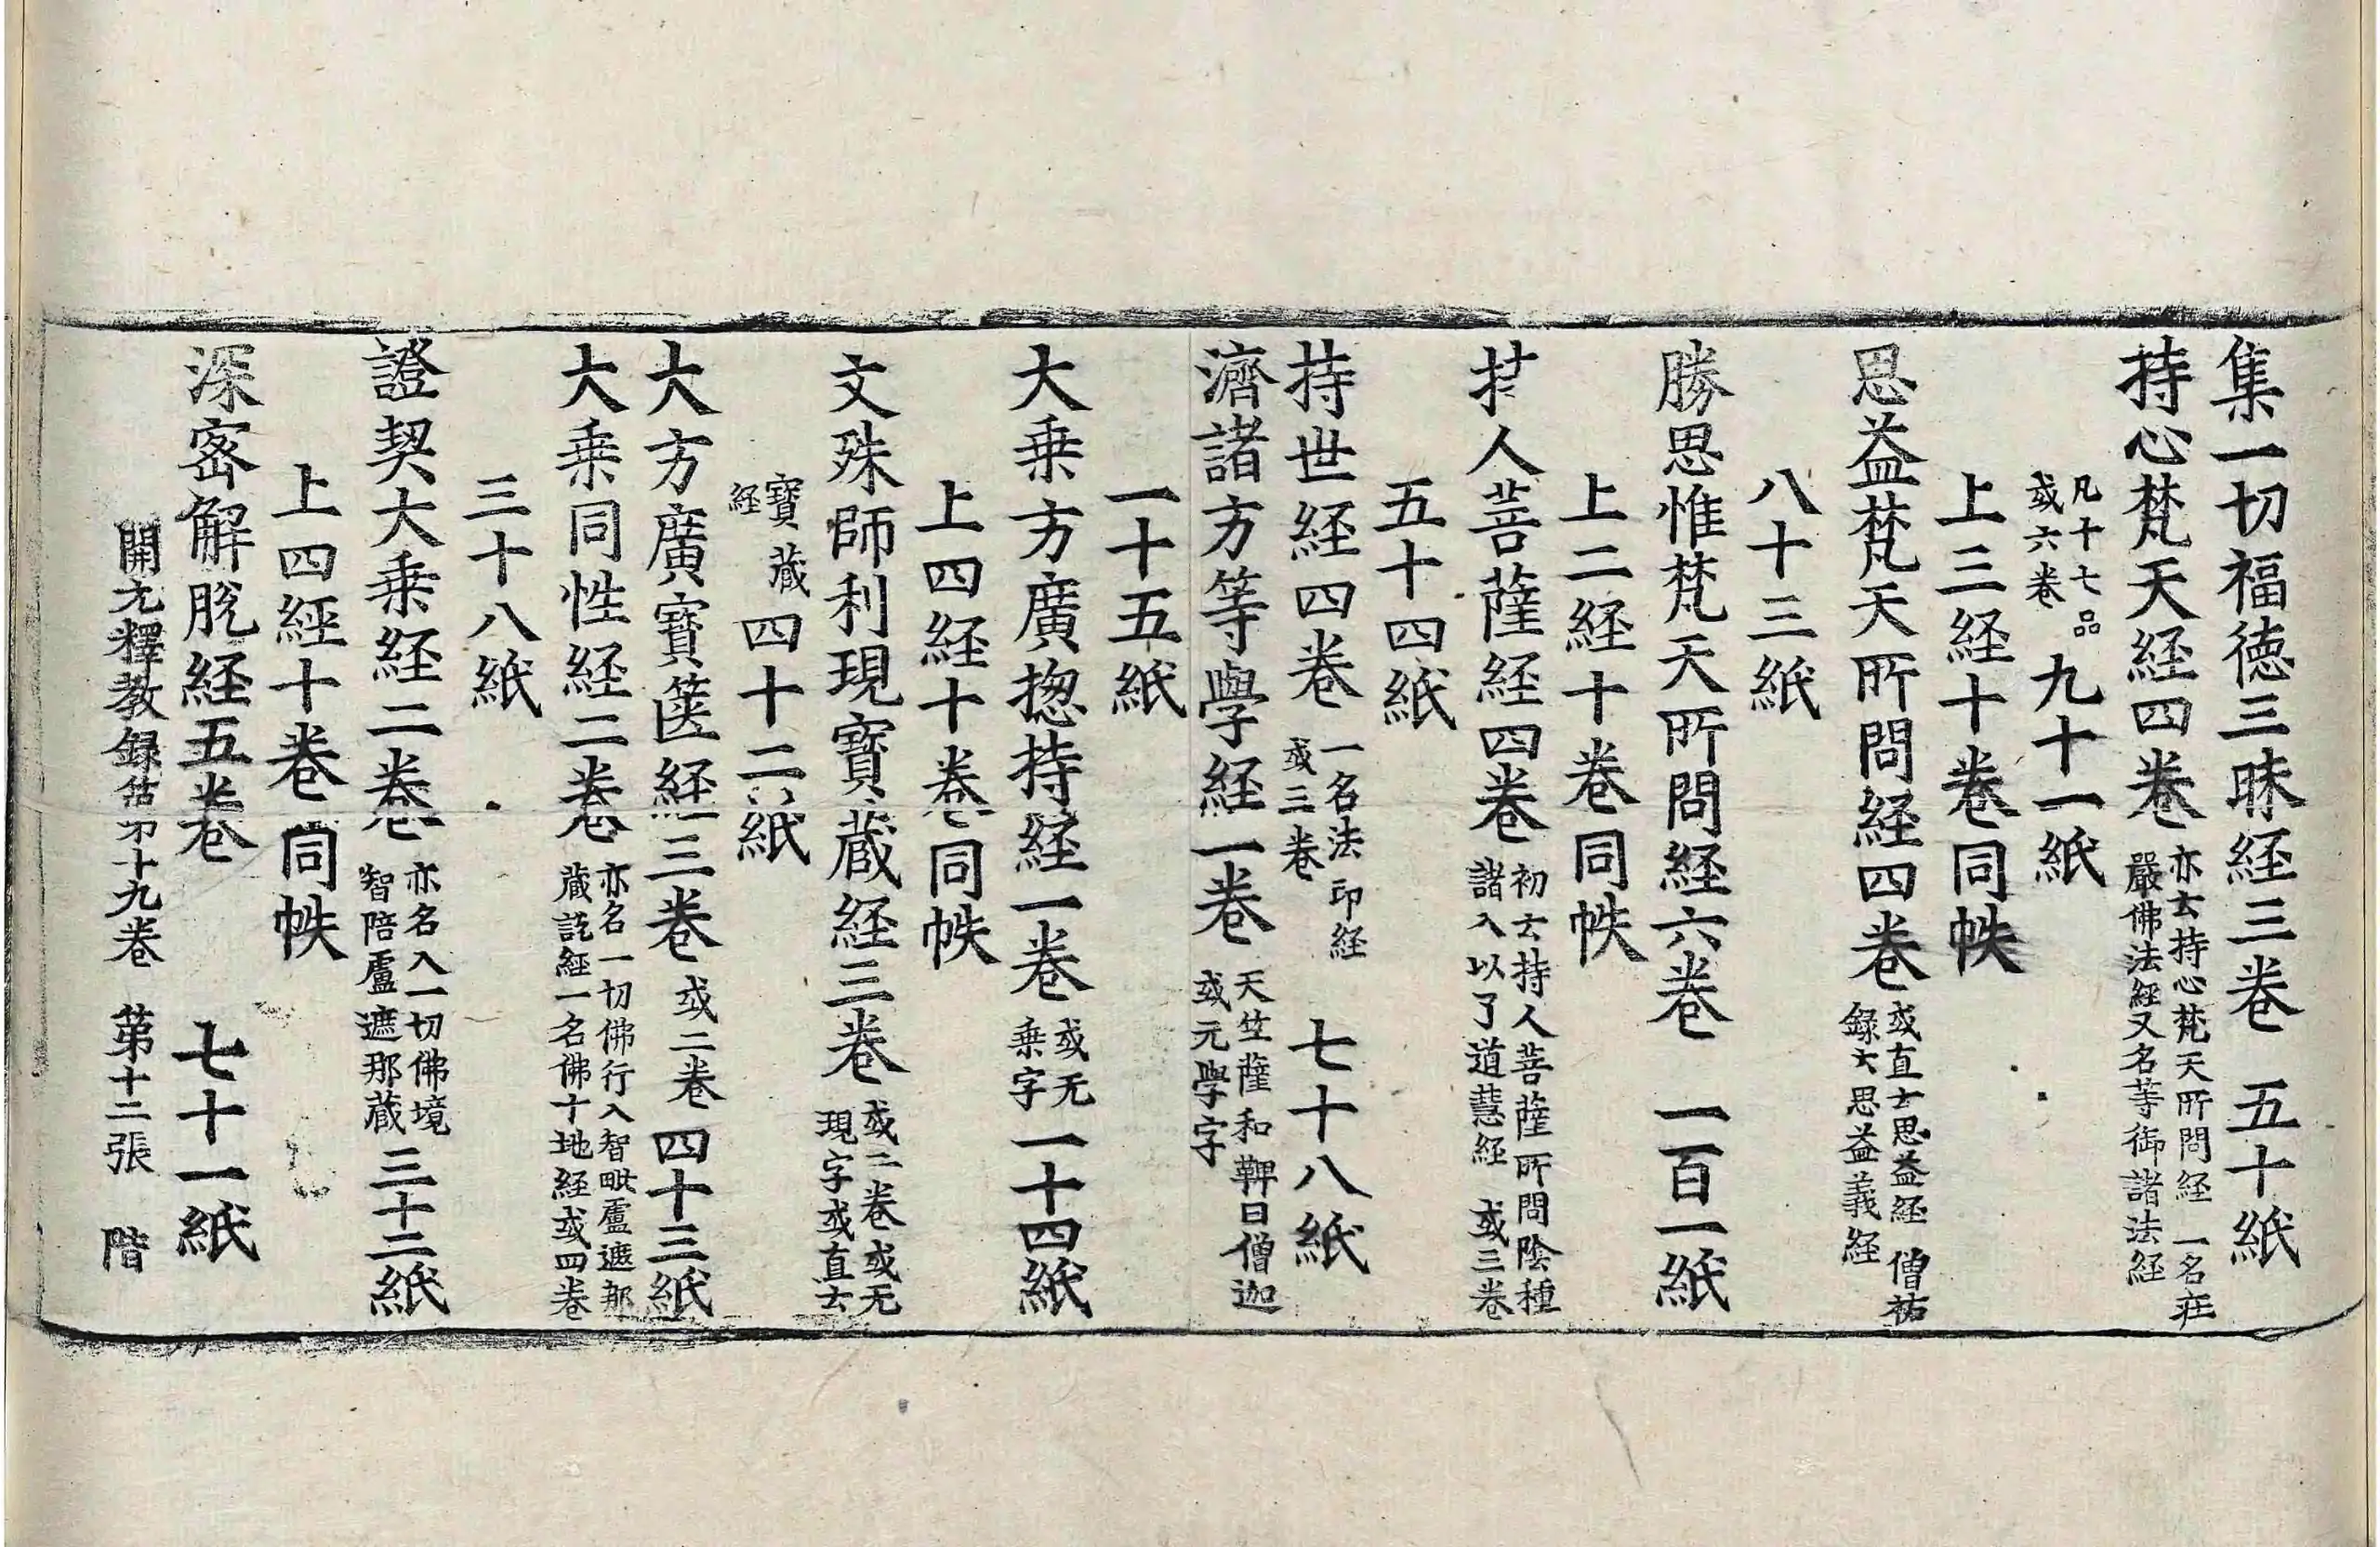 集一切福德三昧経三卷 五十紙
持心梵天経四卷 亦云持心梵天所問経一名莊嚴佛法經又名等御諸法経
凡十七品或六卷 九十一紙
上三経十卷同帙
思益梵天所問経四卷 或直云思益経僧祐録云思益義経
八十三紙
勝思惟梵天所問経六卷 一百一紙
上二経十卷同帙
持人菩薩経四卷 初云持人菩薩所問陰種諸入以了道慧経或三卷
五十四紙
持世経四卷 一名法印経或三卷 七十八紙
濟諸方等學経一卷 天竺薩和鞞曰僧迦或元學字
一十五紙
大乗方廣揔持経一卷 或无乗字 一十四紙
上四経十卷同帙
文殊師利現寶蔵経三卷 或二卷或无現字或直云
寶蔵経 四十二紙
大方廣寶篋経三卷 或二卷 四十三紙
大乗同性経二卷 亦名一切佛行入智毗盧遮那蔵説經一名佛十地経或四卷
三十八紙
證契大乗経二卷 亦名入一切佛境智陪盧遮那蔵 三十二紙
上四經十卷同帙
深密解脱経五卷 七十一紙
開元釋教録 十九卷 第十二張 階